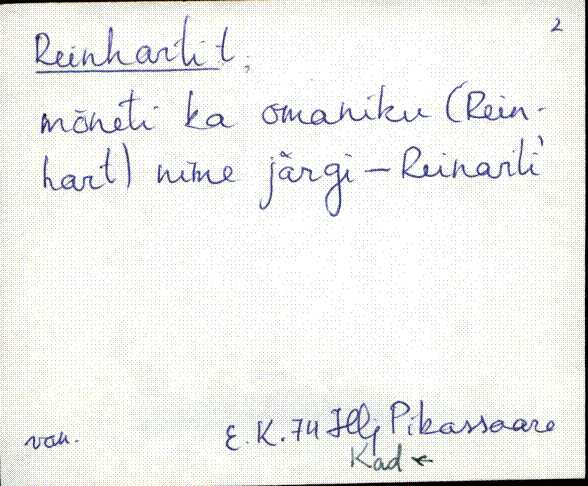 2
Reinharti t,
mõneti ka omaniku (Rein-
hart) nime järgi – Reinarti
van. E. K. 74 Pikassaare
Kad ←